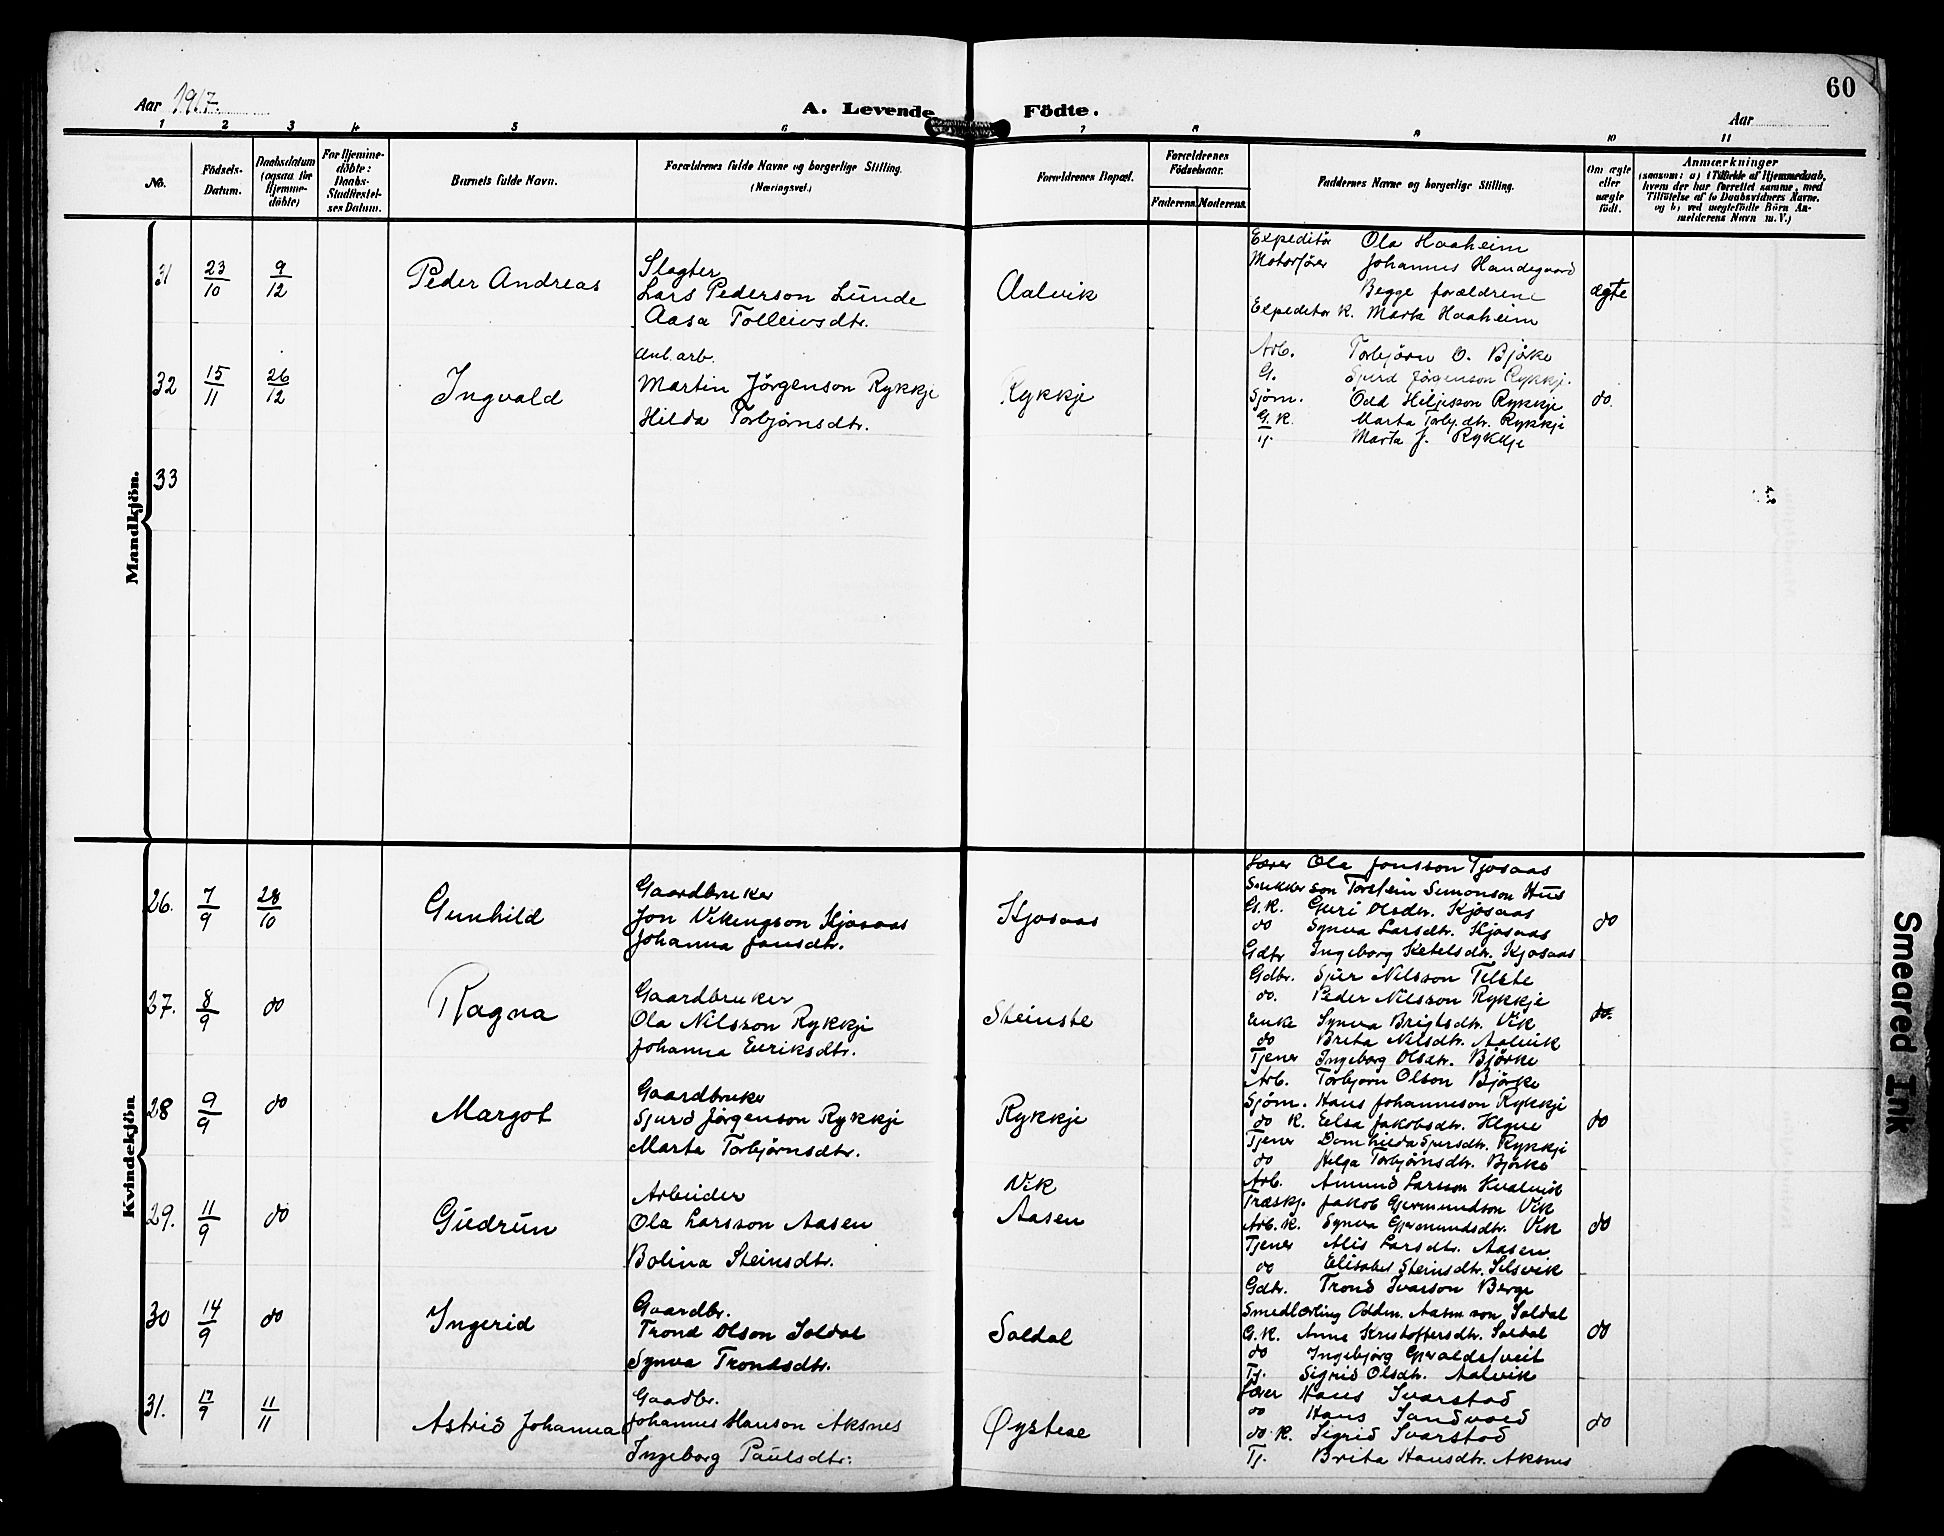 60
Aar 1917.
A. Levende Födte.
Aar
1 2 3 4 5 6 7 8 9 10 11
No.
Födsels-Datum.
Daabsdatum (ogsaa for Hjemme-döbte)
For Hjemme-döbte: Daabs-Stadfæstel-ses Datum.
Barnets fulde Navn.
Forældrenes fulde Navne og borgerlige Stilling. (Næringsvei.)
Forældrenes Bopæl.
Forældrenes Födselsaar.
Faderens. Moderens.
Faddernes Navne og borgerlige Stilling.
Om ægte eller uægte födt.
Anmærkninger
(saasom: a) i Tilfælde af Hjemmedaab, hvem der har forrettet samme, med Tilföielse af to Daabsvidners Navne. og b) ved uægtefödte Börn An-melderens Navn m. V.)
Mandkjön.
31 23/10 9/12 Peder Andreas
Slagter
Lars Pederson Lunde
Aasa Tolleivsdtr.
Aalvik
Expeditør Ola Haaheim
Motorfører Johannes Handegaard
Begge forældrene
Expeditør K. Marta Haaheim
ægte
32 15/11 26/12 Ingvald
Anl. arb.
Martin Jörgenson Rykkje
Hilda Torbjörnsdtr.
Rykkje
Arb. Torbjörn O. Bjöke
G. Sjurd Jörgenson Rykkj.
Sjöm. Odd Heljesson Rykkje
G. K. Marta Torbj.dtr. Rykkje
Marta J. Rykkje
do.
33
Kvindekjön
26. 7/9 28/10 Gunhild
Gaardbruker
Jon Vikingson Kjosaas
Johanna Jonsdtr.
Kjosaas
Lærer Ola Jonsson Tjosaas
Snekker son Torstein Simonson Hus
G. K. Guri Olsdtr. Kjosaas
do Synva Larsdtr. Kjosaas
Gdtr Ingeborg Ketelsdtr. Kjosaas
do
27. 8/9 do Ragna
Gaardbruker
Ola Nilsson Rykkje
Johanna Eiriksdtr.
Steinstø
Gdbr. Sjur Nilsson Telste
do. Peder Nilsson Rykkje
Enke Synva Brigtsdtr. Vik
do Brita Nilsdtr. Aalvik
Tjener Ingeborg Olsdtr. Björke
do.
28 9/9 do Margot
Gaardbruker
Sjurd Jörgenson Rykkje
Marta Torbjörnsdtr.
Rykkje
Arb. Torbjorn Olson Björke
Sjöm. Hans Johanneson Rykkje
do K. Eelsa Jakobsdtr. Hegne
Tjener Domhilda Sjursdtr. Rykkje
do Helga Torbjörnsdtr. Björke
do
29. 11/9 do Gudrun
Arbeider
Ola Larsson Aasen
Bolina Steinsdtr.
Vik
Aasen
Arb. Amund Larsson Kvalvik
Træskj. Jakob Germundson Vik
Arb. K. Synva Germundsdtr. Vik
Tjener Alis Larsdtr. Aasen
do Elisabet Steinsdtr. Silsvik
do
30 14/9 do Ingerid
Gaardbr.
Trond Olson Soldal
Synva Trondsdtr.
Soldal
Gdtr. Trond Ivarson Berge
Smedlærling Oddm. Aasmson Soldal
G. K. Anna Kristoffersdtr. Soldal
do Ingebjörg Gjeraldstveit
Tj. Sigrid Olsdtr. Aalvik
do
31. 17/9 11/11 Astrid Johanna
Gaadbr.
Johannes Hanson Aksnes
Ingeborg Paulsdtr.
Øystese
Lærer Hans Svarstad
do Hans Sandvoed
do K. Sigrid Svarstad
Tj. Brita Hansdtr. Aksnes
do
Smeared Ink